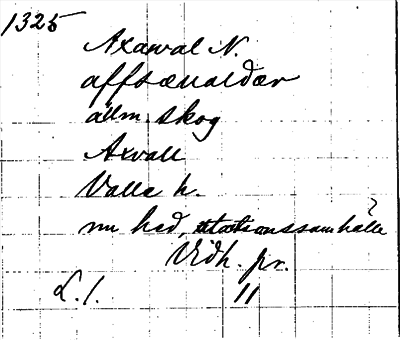 1325
Axawal N.
affsænaldær
allm. skog
Axvall
Valla h.
nu hed, stationssamhälle ?
Vidh. pr.
L. 1. 11